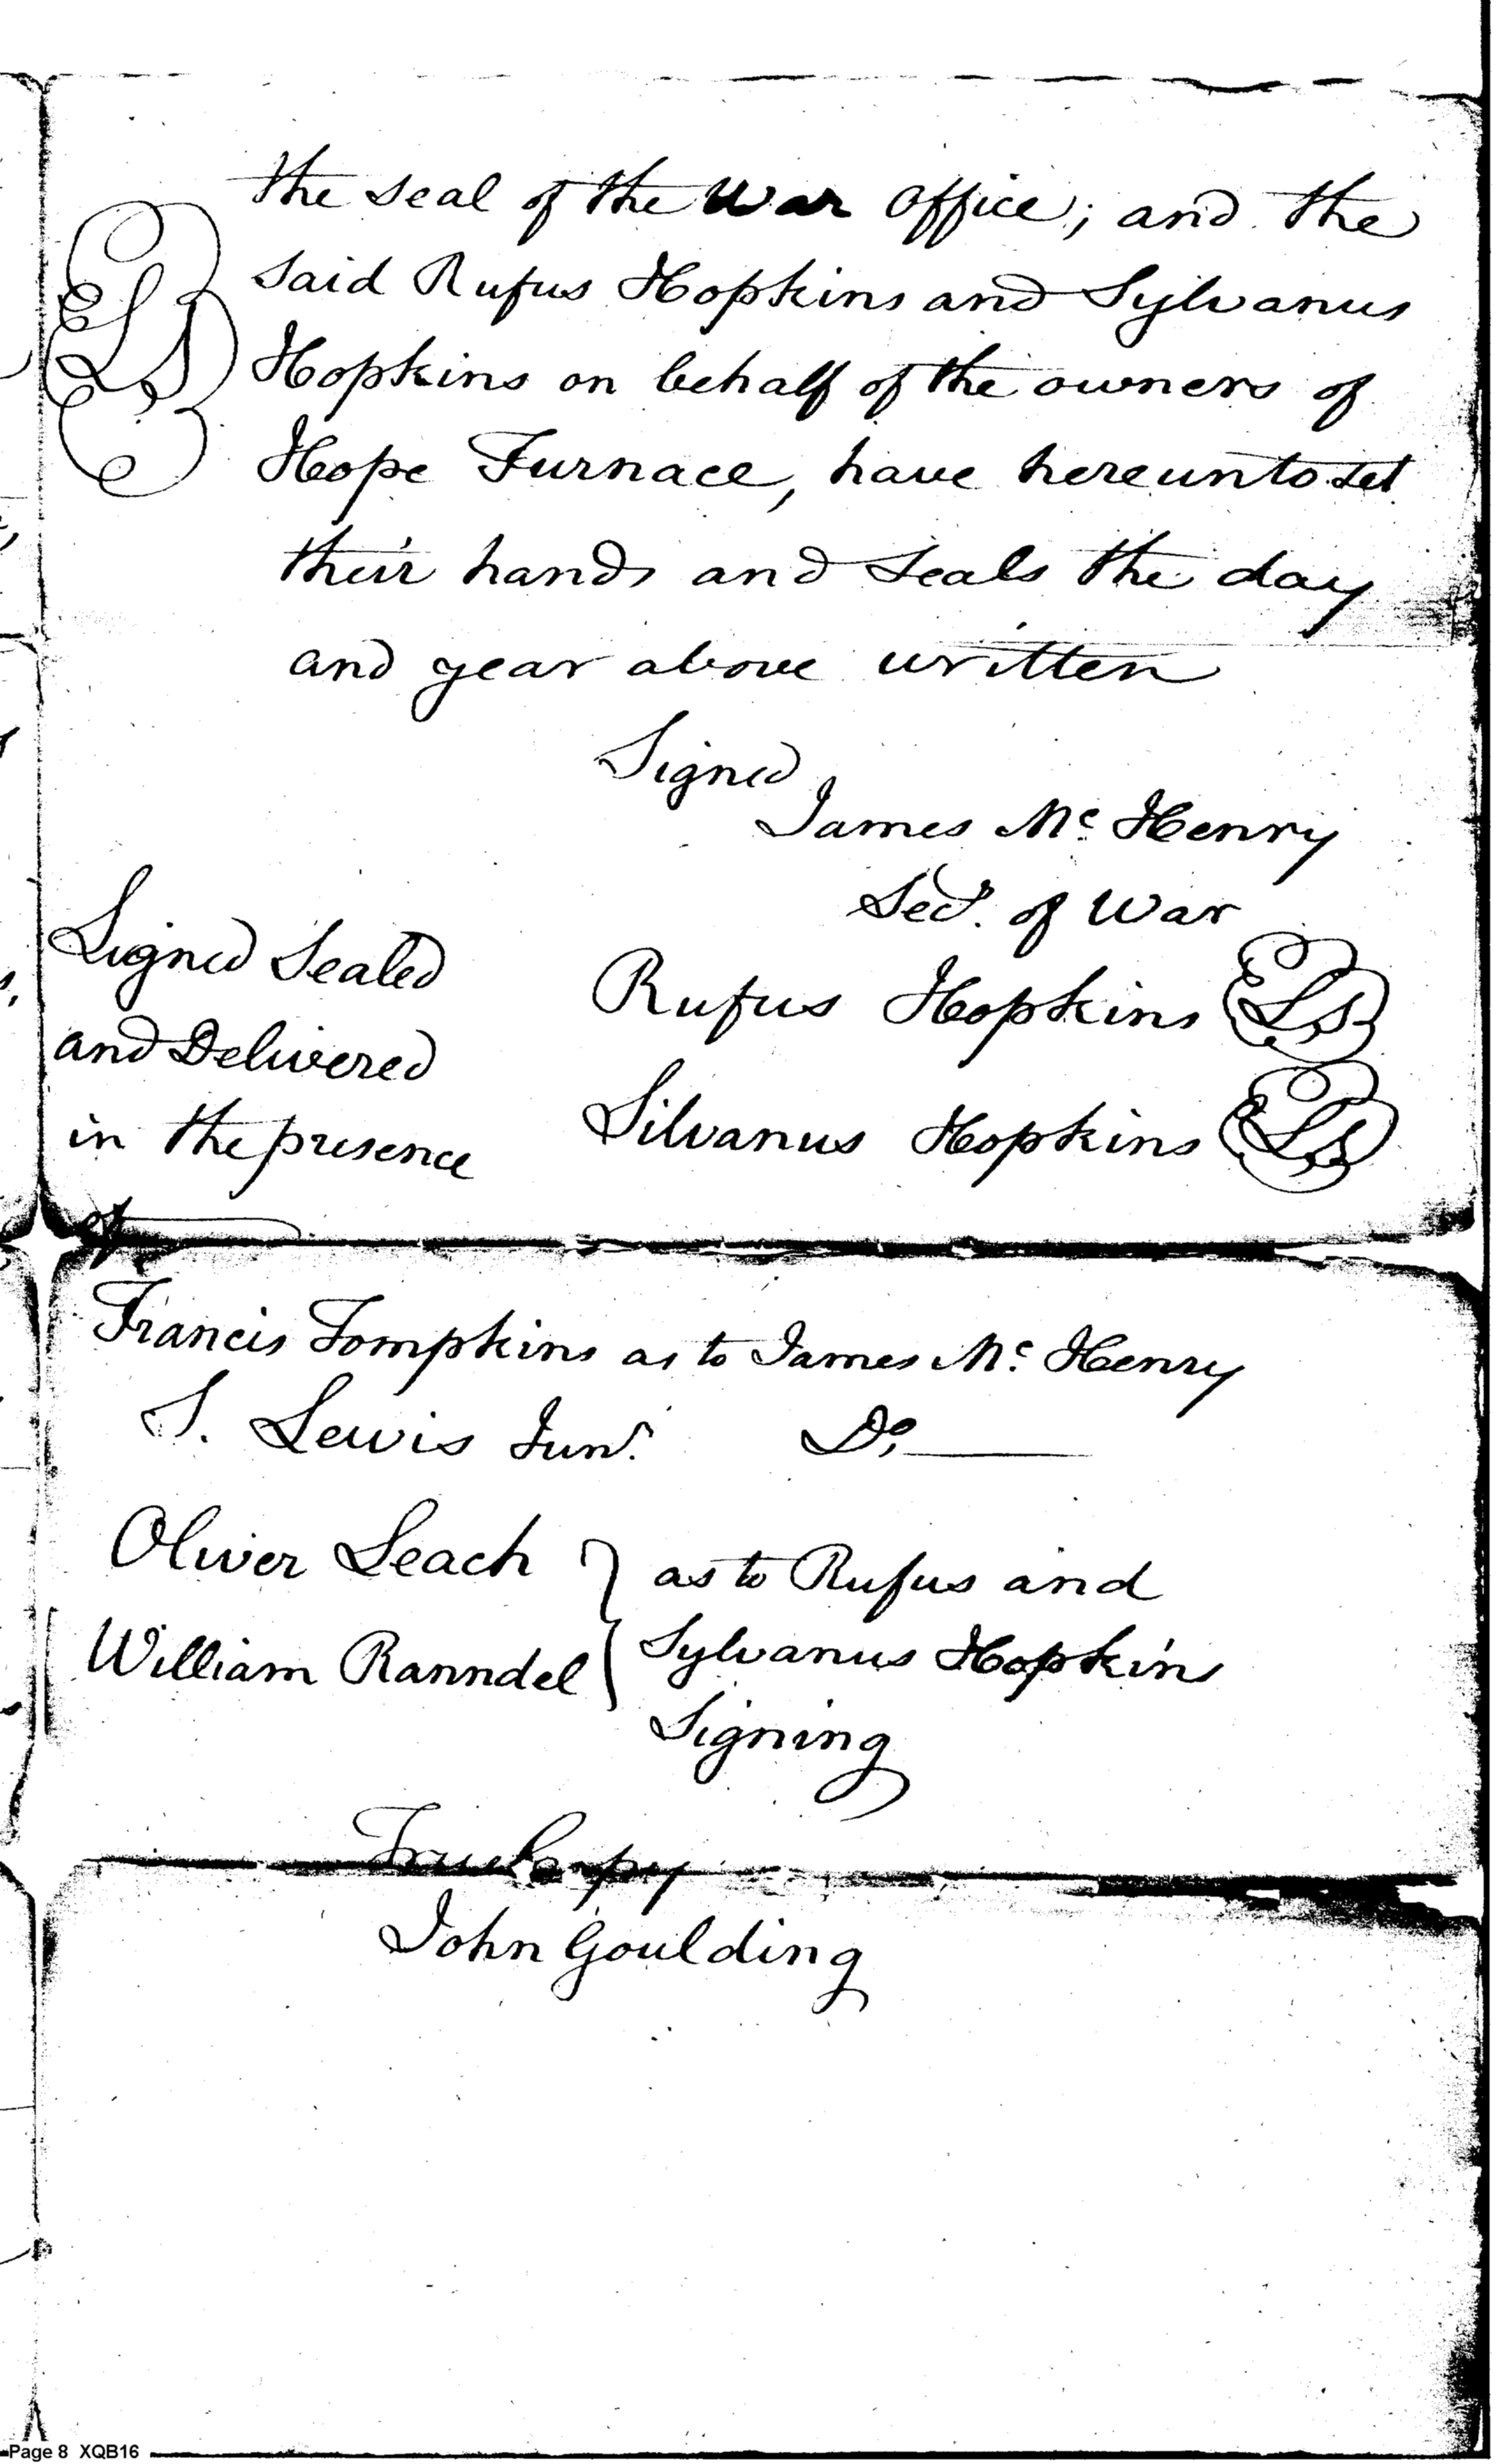 the seal of the War Office; and the
LS
said Rufus Hopkins and Sylvanus
Hopkins on behalf of the owners of
Hope Furnace, have hereunto set
their hands and seals the day
and year above written
Signed
James Mc. Henry
Secy. of War
Signed Sealed
and Delivered
in the presence
of
Rufus Hopkins LS
Silvanus Hopkins LS
Francis Tompkins as to James Mc. Henry
S. Lewis Junr. Do.
Oliver Leach } as to Rufus and
William Ranndel { Sylvanus Hopkins
Signing
True Copy
John Goulding
Page 8 XQB16